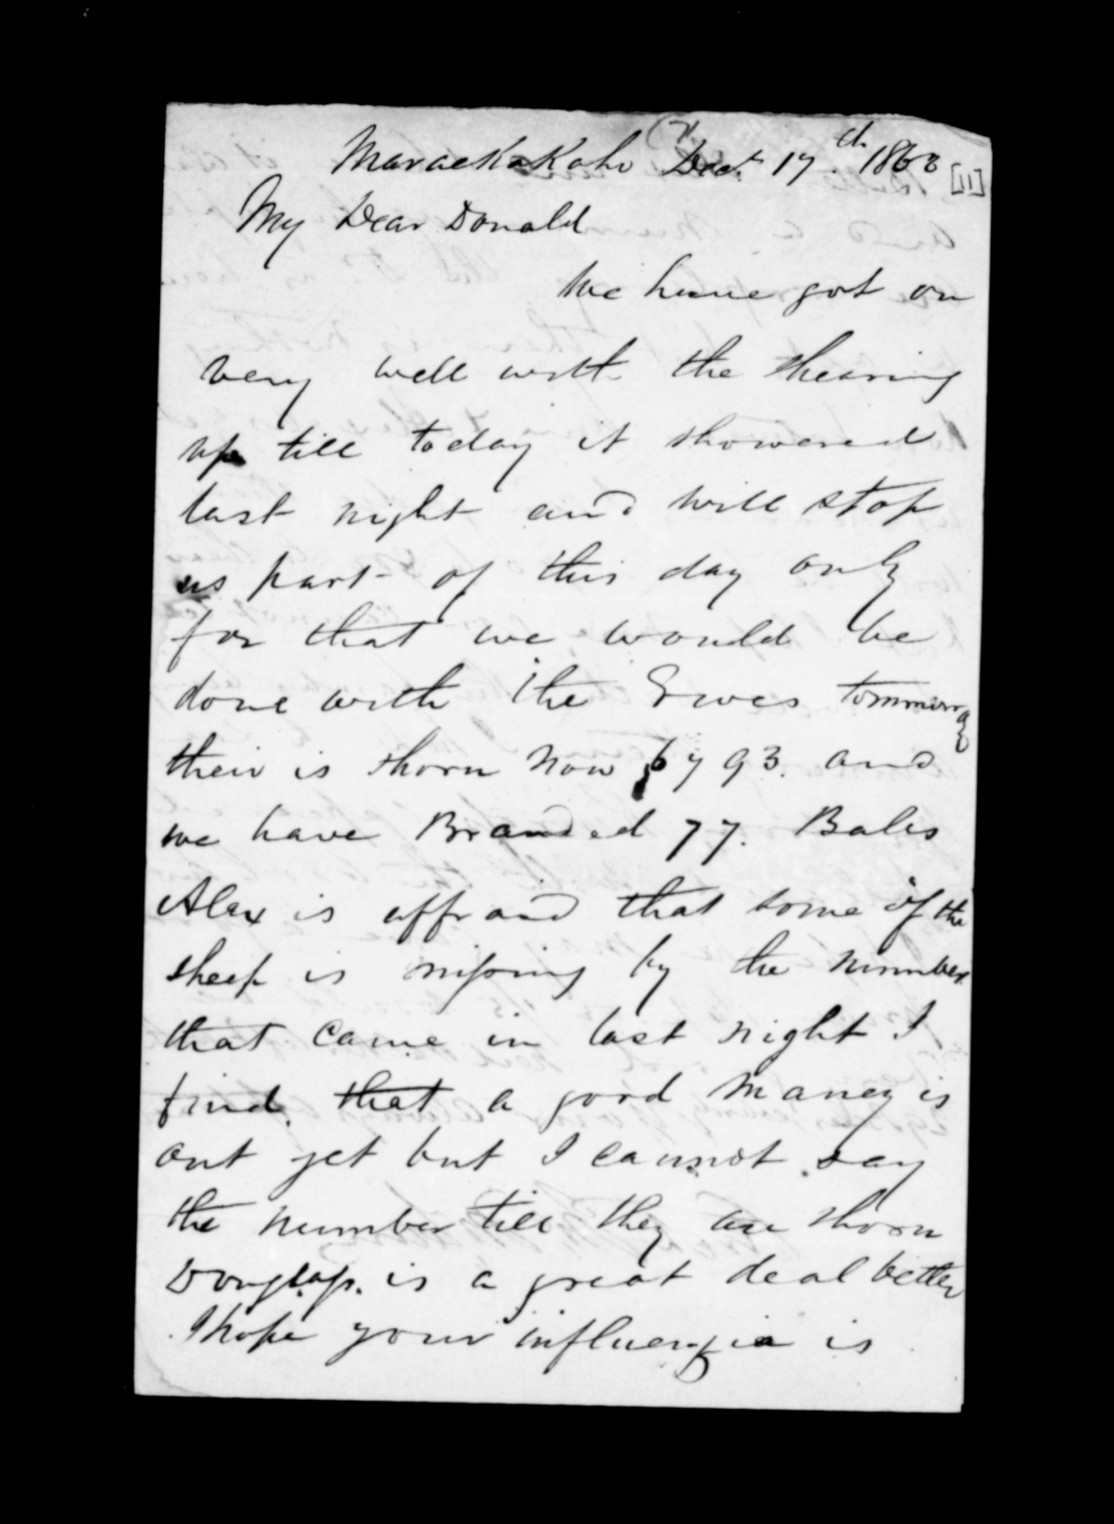 Maraekakaho Dec. 17th 1863 [11]
My Dear Donald
We have got on
very well with the shearing
up till today it showered
last night and will stop
us part of this day only
for that we would be
done with the Ewes tommorry
their is shorn now 6793. and
we have Branded 77. Bales
Alex is affraid that some of the
sheep is missing by the number
that came in last night I
find that a good maney is
out yet but I cannot say
the number till they are shorn
Douglass. is a great deal better
I hope your influenzia is